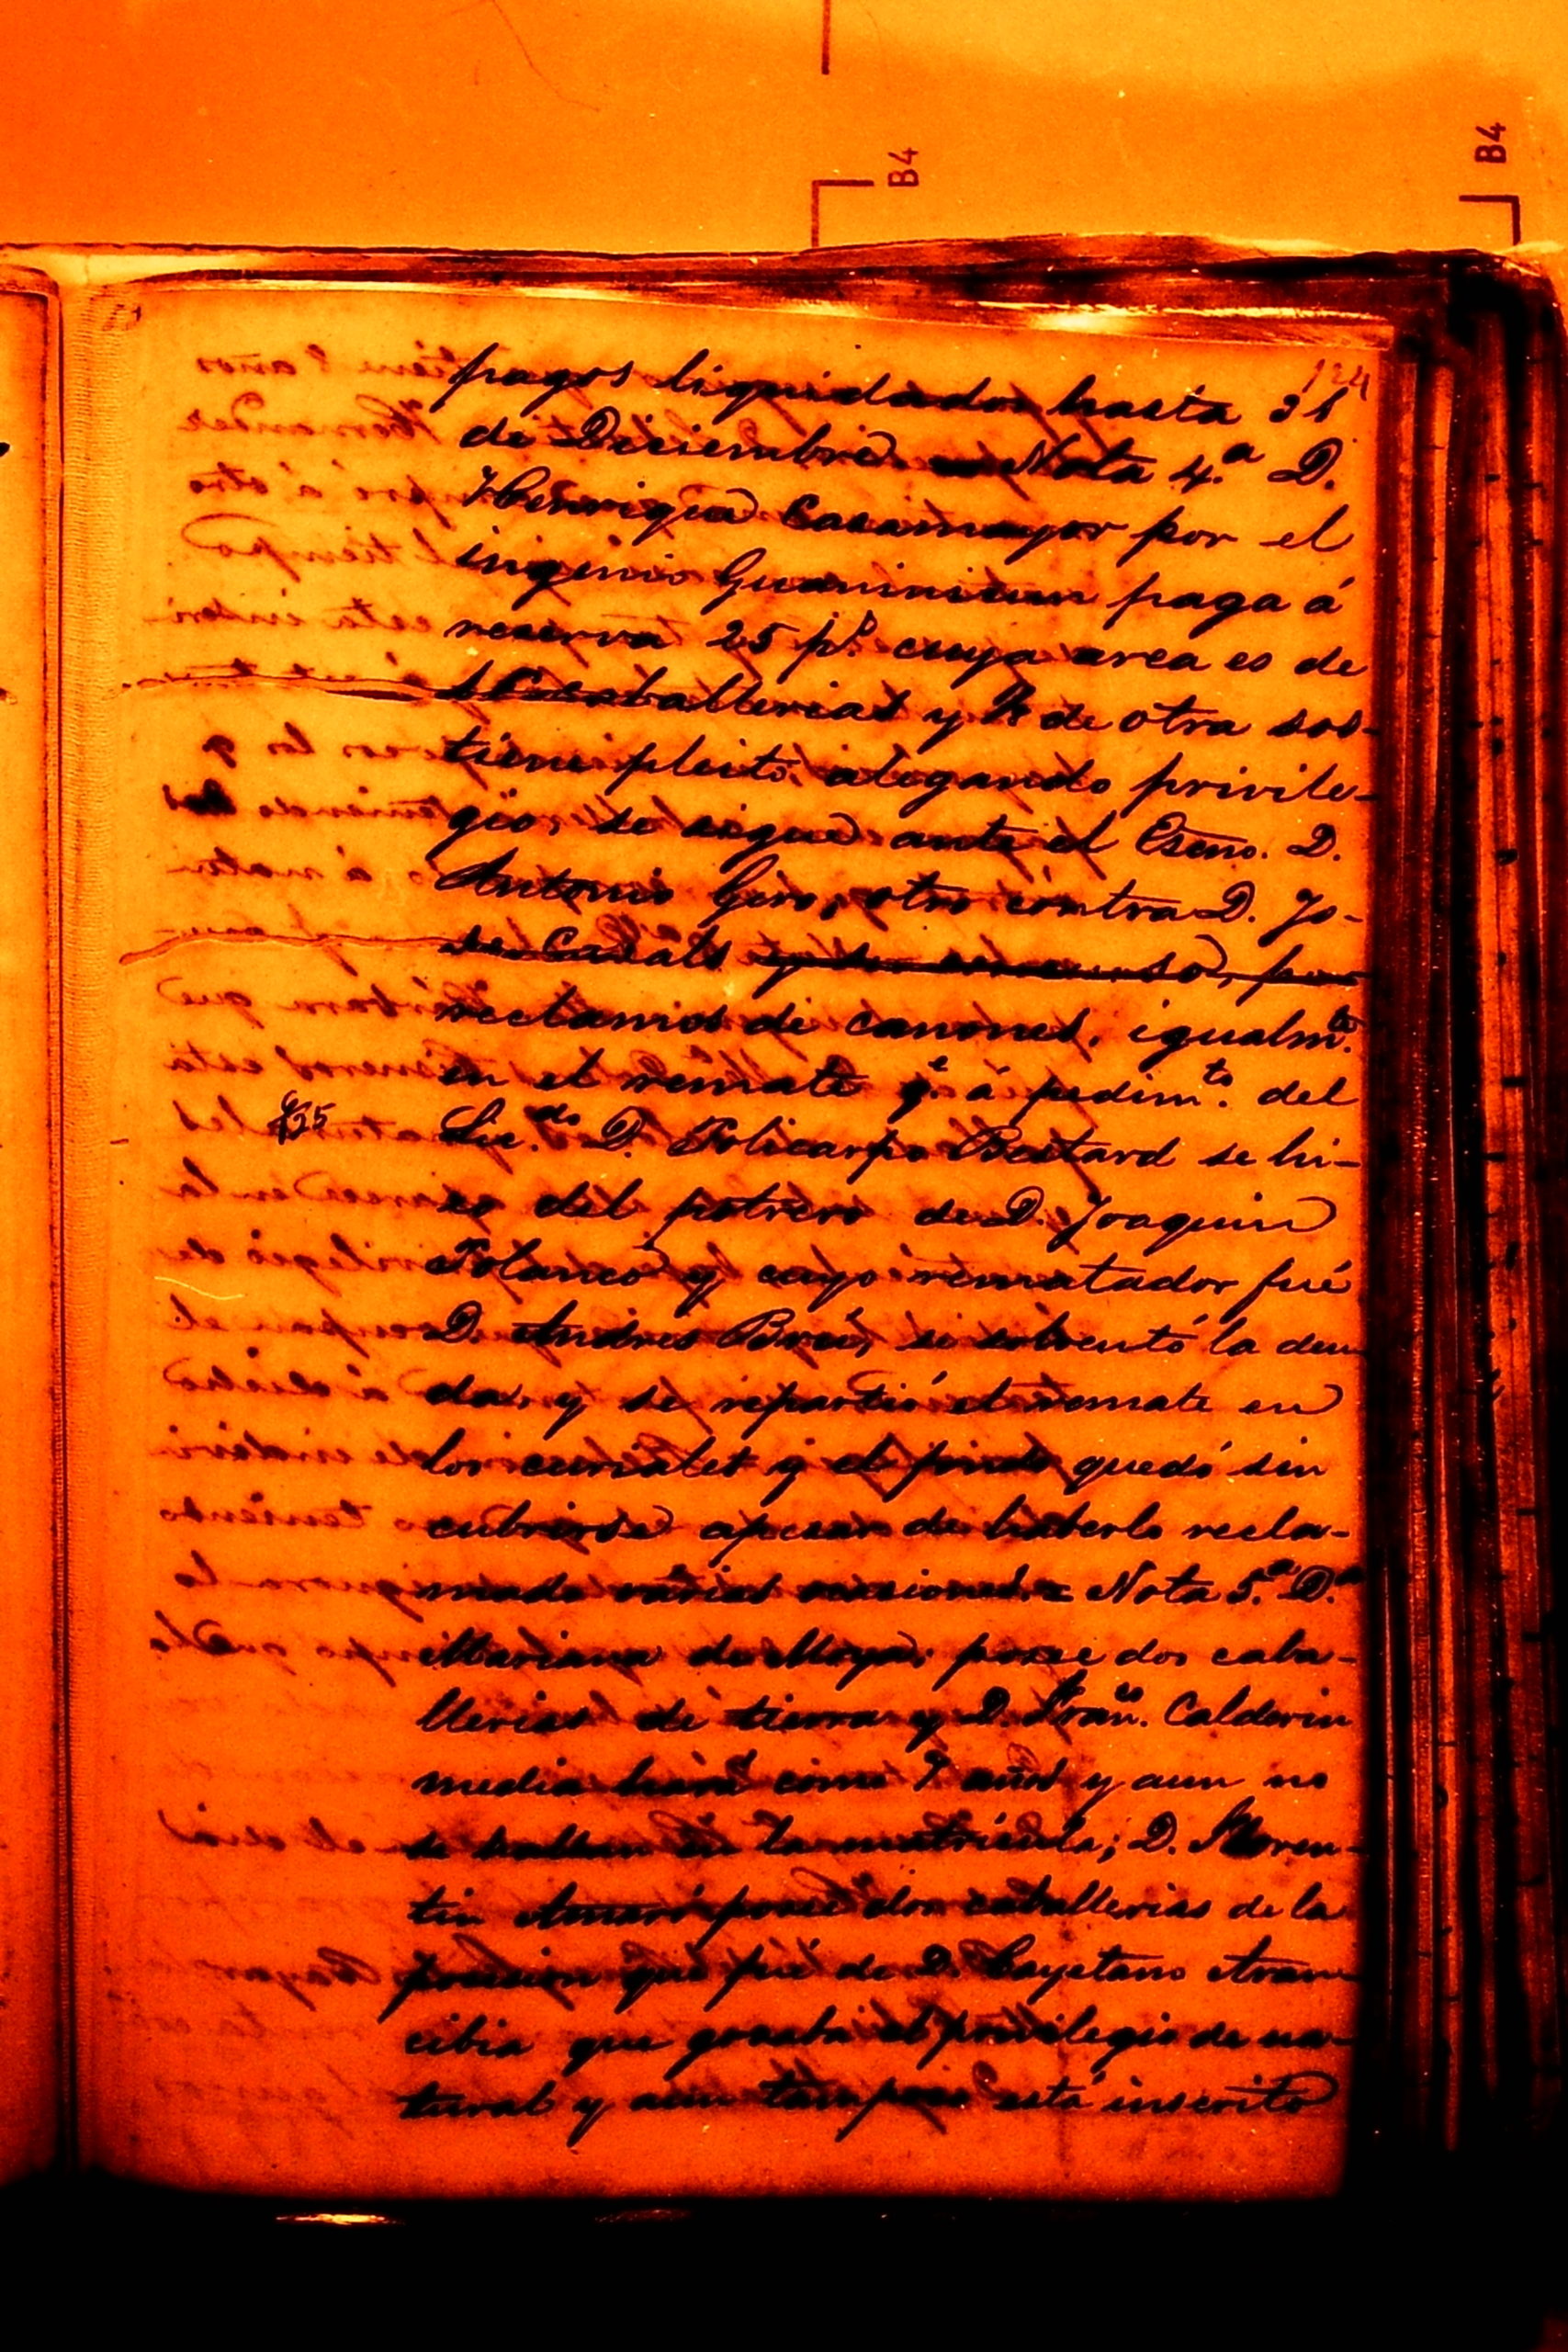 B4
B4
124
pagos liquidados hasta 31
de Diciembre = Nota 4.a D.
Henrique Casamayor por el
ingenio Guaninicun paga á
reserva 25 p.s cuya area es de
caballerias y de otra sos-
tiene pleito, alegando privile-
gio, se sigue ante el Esno. D.
Antonio Giro, otro contra D. Jo-
se Casals y su concurso, por
reclamos de canones, igualm.te
en el remate q.e á pedim.to del
Lic.do D. Policarpo Bestard se hi-
so del potrero de D. Joaquin
Polanco y cuyo rematador fué
D. Andres se solventó la deu
da, y se repartió el remate en
los curiales y el quedó sin
cubrirse apesar de haberlo recla-
mado varias ocasiones. = Nota 5.a D.a
Mariana de Moya, posee dos caba-
llerias de tierra y D. Fran.co Calderin
media hará como 7 años y aun no
se hallan en la matrícula; D. Floren-
tin posee dos caballerias de la
posesion que fué de D. Cayetano Aran
cibia que gosaba el privilegio de na-
tural y aun tampoco está inscrito